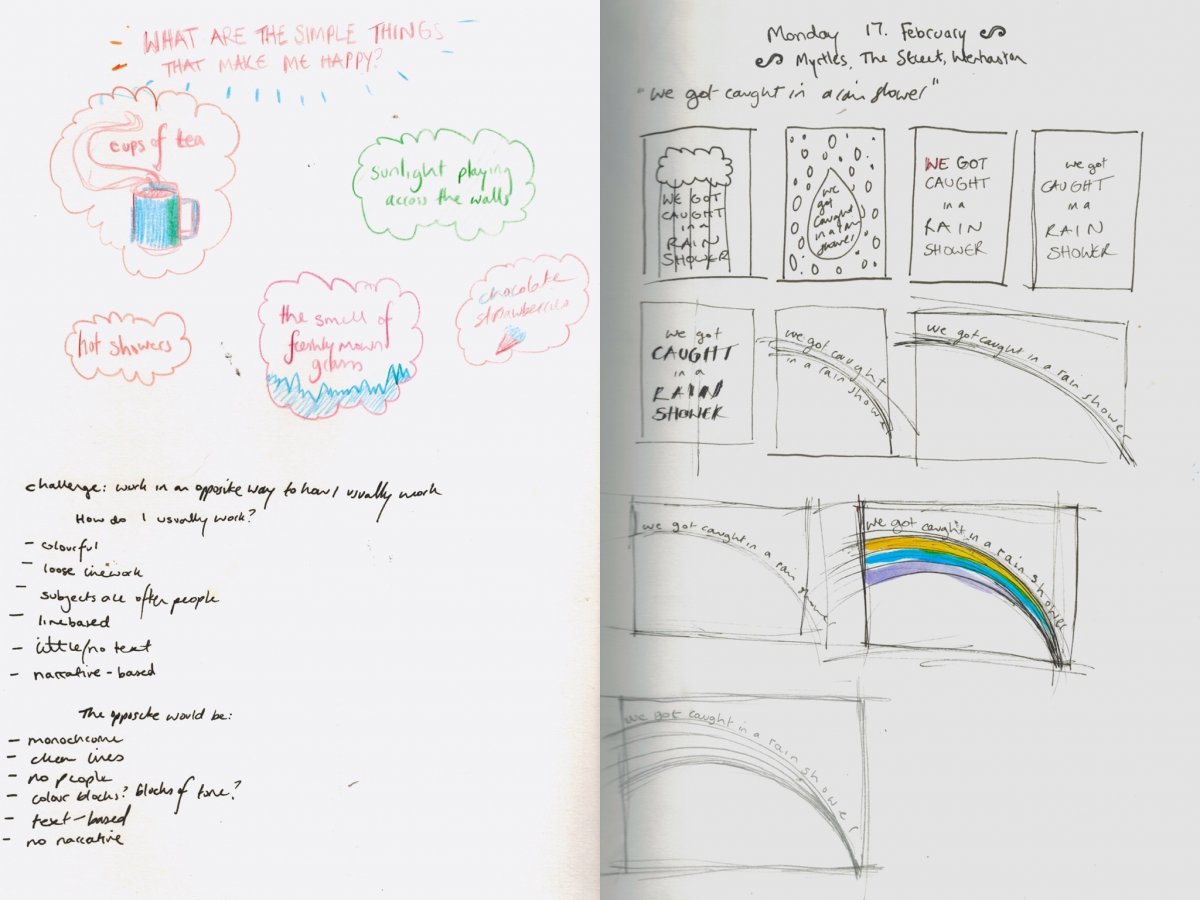 WHAT ARE THE SIMPLE THINGS
THAT MAKE ME HAPPY?
cups of tea
sunlight playing
across the walls
hot showers
the smell of
freshly mown
grass
chocolate
strawberries
challenge: work in an opposite way to how I usually work
How do I usually work?
- colourful
- loose linework
- subjects are often people
- linebased
- little/no text
- narrative-based
The opposite would be:
- monochrome
- clean lines
- no people
- colour blocks? blocks of tone?
- text-based
- no narrative
Monday 17. February
Myrtles, The Street,
"we got caught in a rain shower"
WE GOT
CAUGHT
in a
RAIN
SHOWER
we
got
caught
in a rain
shower
WE GOT
CAUGHT
in a
RAIN
SHOWER
we got
CAUGHT
in a
RAIN
SHOWER
we got
CAUGHT
in a
RAIN
SHOWER
we got caught
in a rain shower
we got caught in a rain shower
we got caught in a rain shower
we got caught in a rain shower
we got caught in a rain shower